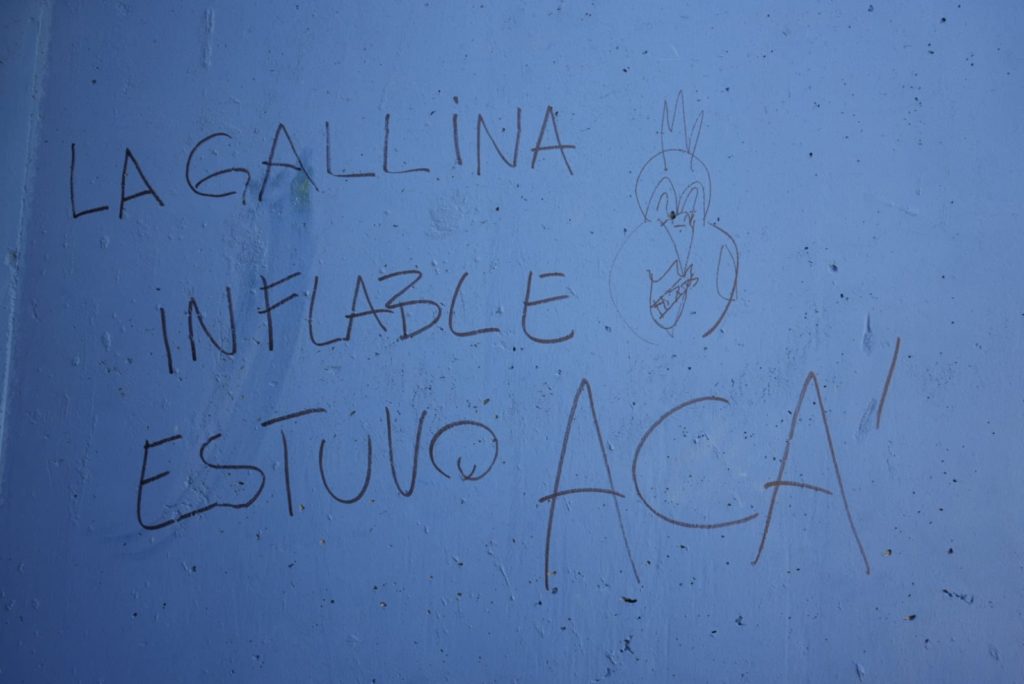 LA GALLINA
INFLABLE
ESTUVO ACÁ